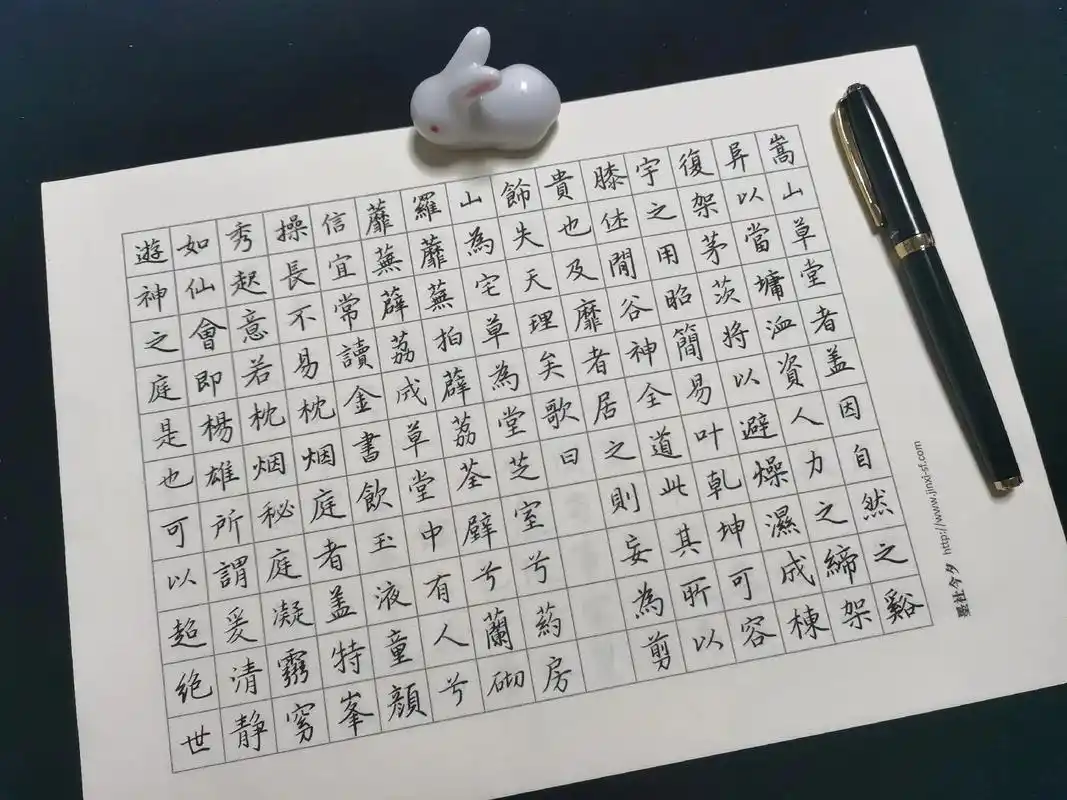 嵩山草堂者盖因自然之谿
阜以當墉洫資人力之締架
復架茅茨將以避燥濕成棟
宇之用昭簡易叶乾坤可容
膝休閒谷神全道此其所以
貴也及靡者居之則妄為剪
飾失天理矣歌曰
山為宅草為堂芝室兮葯房
羅蘼蕪拍薜荔荃壁兮蘭砌
蘼蕪薜荔成草堂中有人兮
信宜常讀金書飲玉液童顔
操長不易枕烟庭者盖特峯
秀起意若枕烟秘庭凝靈窅
如仙會即楊雄所謂爰清静
遊神之庭是也可以超絶世
墨社今夕 http://www.ijinxi-sf.com